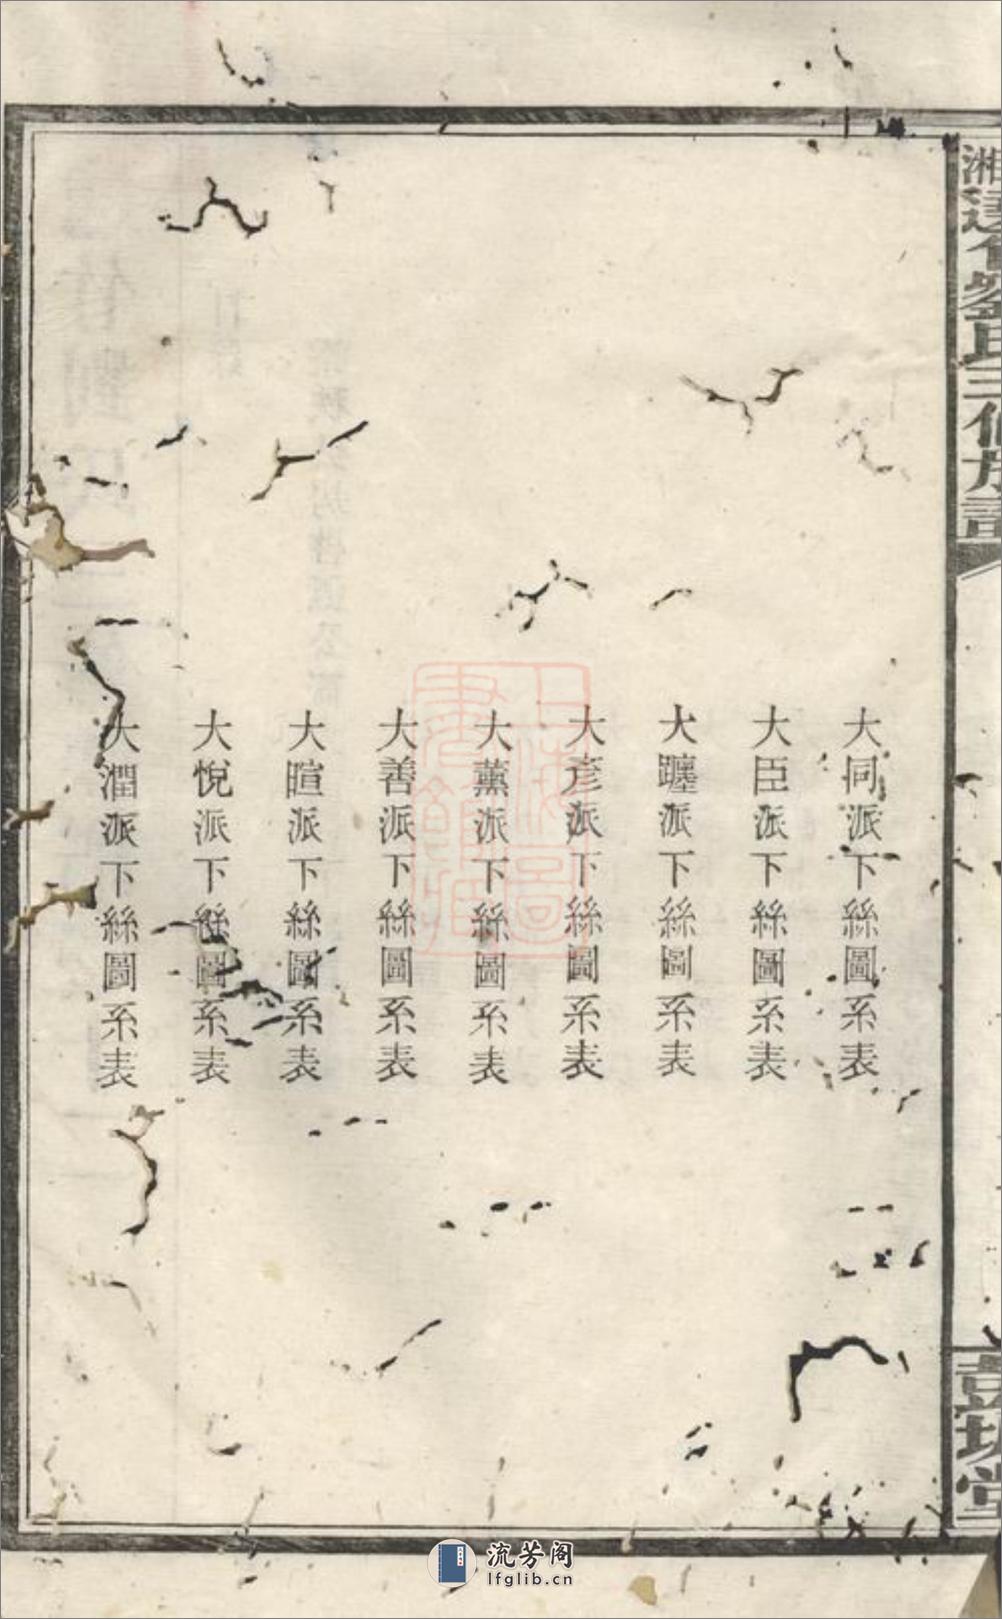 大同派下絲圖系表
大臣派下絲圖系表
大躔派下絲圖系表
大彥派下絲圖系表
大薰派下絲圖系表
大善派下絲圖系表
大暄派下絲圖系表
大悅派下絲圖系表
大潤派下絲圖系表
流芳阁
lfglib.cn